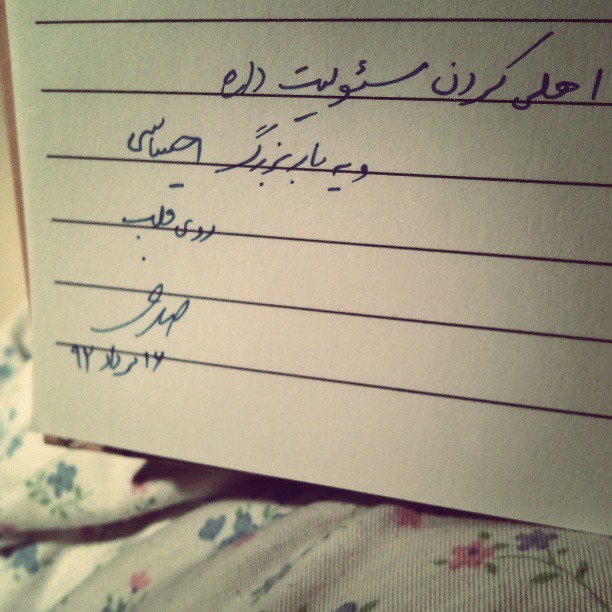 اهلی کردن مسئولیت داره
و یه بار بزرگ احساسی
روی قلب
۱۶ مرداد ۹۲